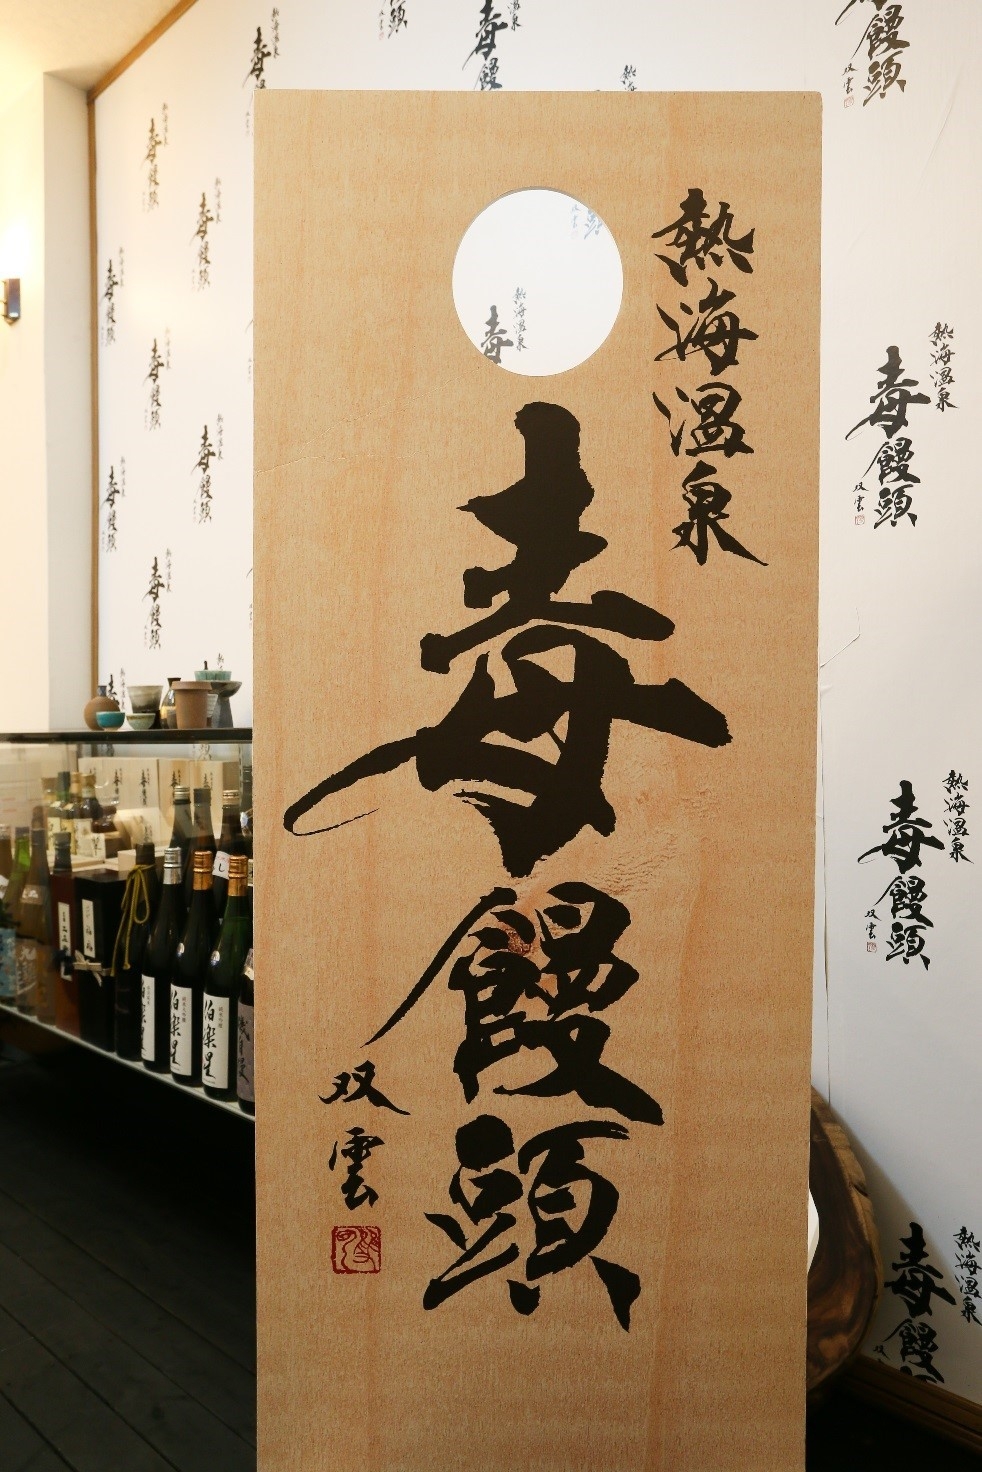 熱海温泉
毒饅頭
双雲
熱海温泉
毒饅頭
双雲
熱海温泉
毒饅頭
双雲
熱海温泉
毒饅頭
伯楽星
伯楽星
伯楽星